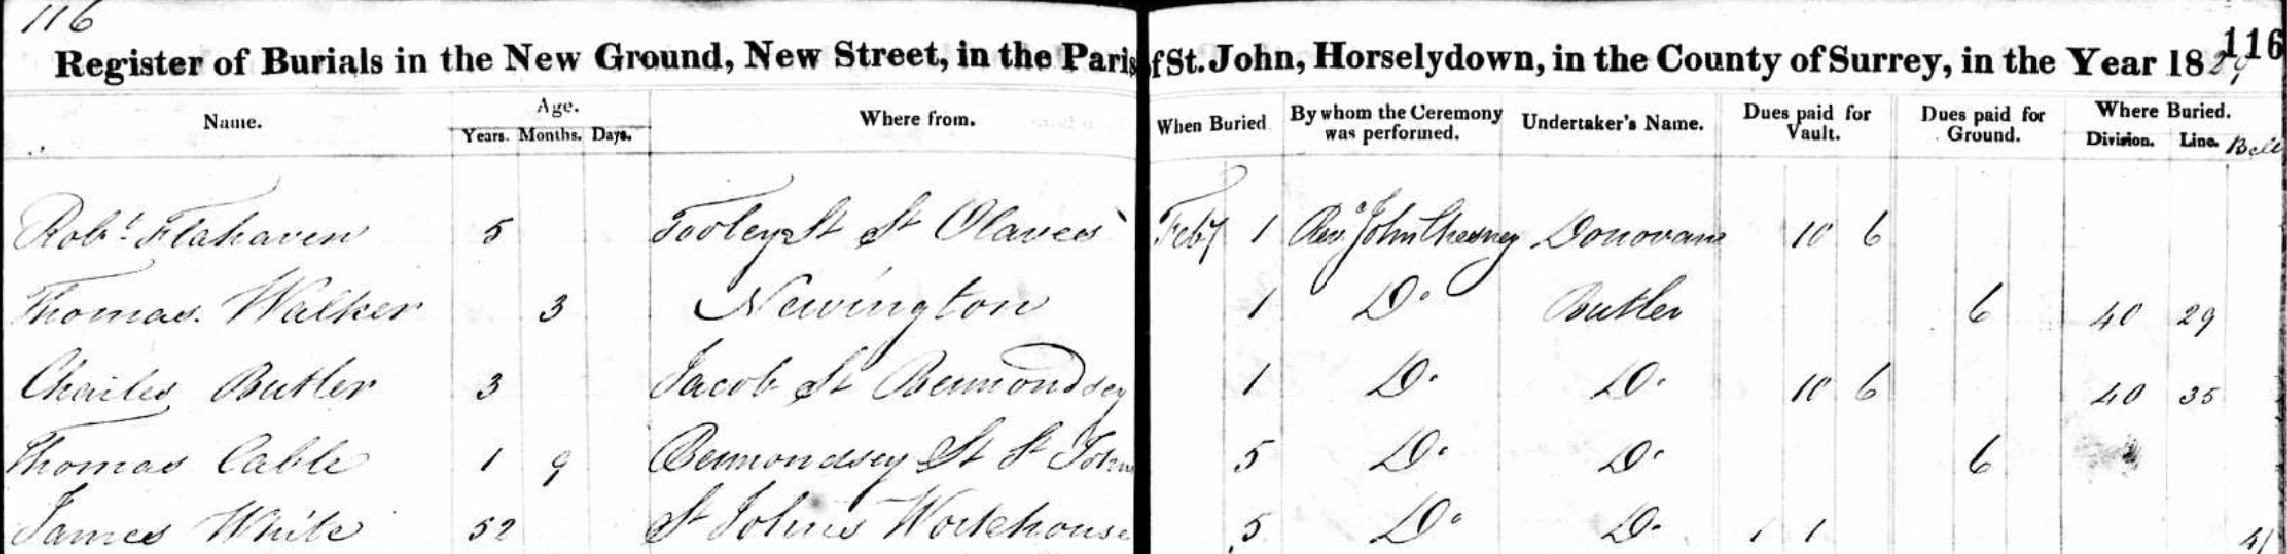 116
116
Register of Burials in the New Ground, New Street, in the Paris f St. John, Horselydown, in the County of Surrey, in the Year 1829
Name. Age. Where from. When Buried By whom the Ceremony was performed. Undertaker's Name. Dues paid for Vault. Dues paid for Ground. Where Buried.
Years. Months. Days. Division. Line. Bell
Robt. Flahaven 5 Tooley St St Olaves Feby 1 Rev. John Chesney Donovan 10 6
Thomas. Walker 3 Newington 1 Do Butler 6 40 29
Charles Butler 3 Jacob St Bermondsey 1 Do Do 10 6 40 35
Thomas Cable 1 9 Bermondsey St St Johns 5 Do Do 6
James White 52 St Johns Workhouse 5 Do Do 1 1